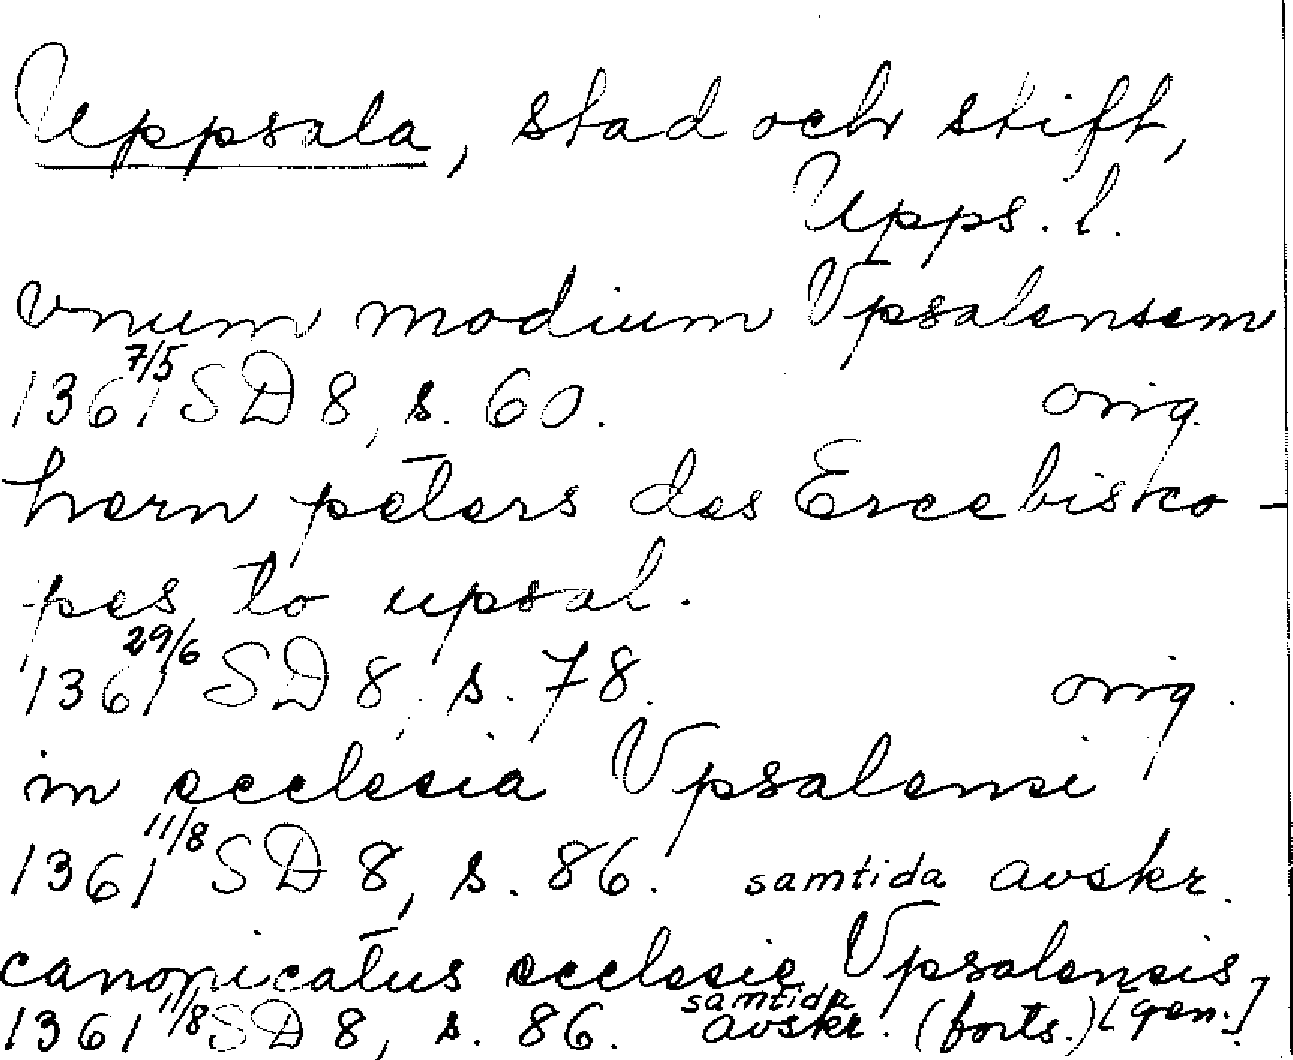 Uppsala, stad och stift,
Upps. l.
vnum modium Vpsalensem
1361 7/5 SD 8, s. 60. orig.
hern peters des Ercebisco-
pes to upsal.
1361 29/6 SD 8, s. 78. orig.
in ecclesia Vpsalensi
1361 11/8 SD 8, s. 86. samtida avskr.
canonicatus ecclesie Vpsalensis
1361 11/8 SD 8, s. 86. samtida avskr. (forts.) [gen.]